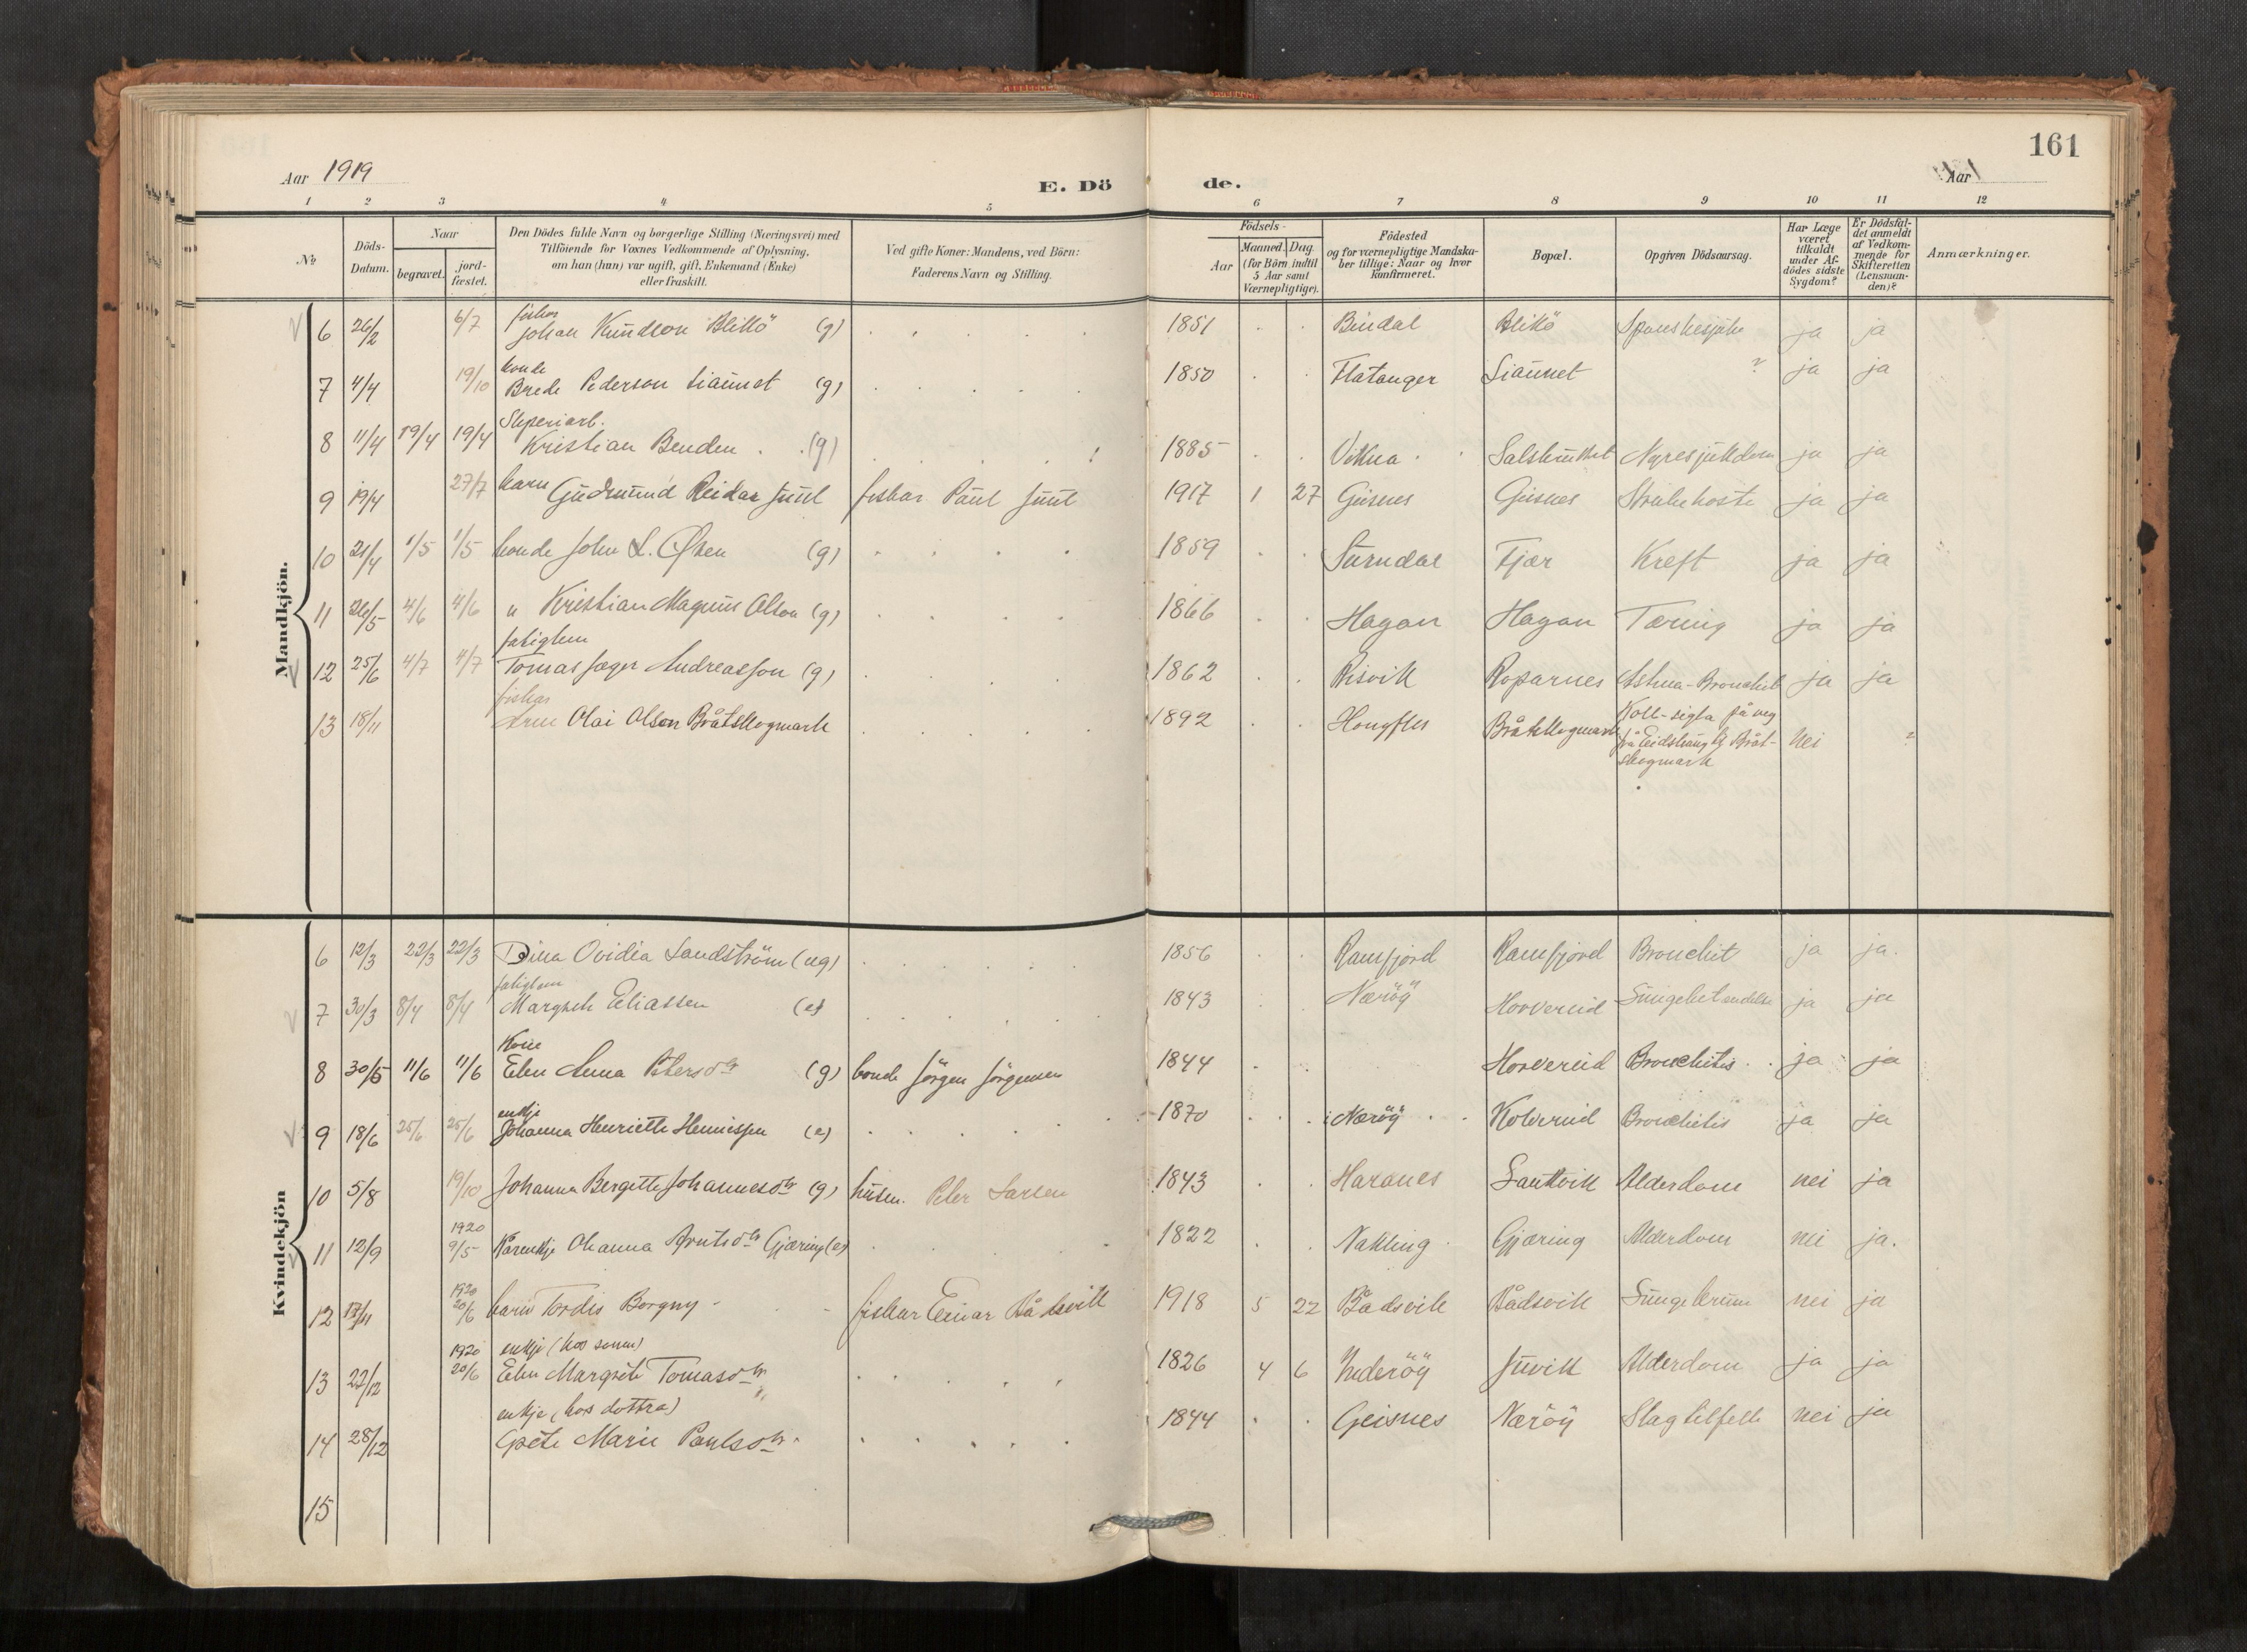 161
Aar 1919
E. Dö de.
Aar
1 2 3 4 5 6 7 8 9 10 11 12
№
Döds-Datum.
Naar
begravet.
jord-fæstet.
Den Dödes fulde Navn og borgerlige Stilling (Næringsvei) med
Tilföiende for Voxnes Vedkommende af Oplysning,
om han (hun) var ugift, gift, Enkemand (Enke)
eller fraskilt.
Ved gifte Koner: Mandens, ved Börn:
Faderens Navn og Stilling.
Födsels-
Aar
Maaned. Dag.
(for Börn indtil
5 Aar samt
Værnepligtige).
Födested
og for værnepligtige Mandska-
ber tillige: Naar og hvor
konfirmeret.
Bopæl.
Opgiven Dödsaarsag.
Har Læge
været
tilkaldt
under Af-
dödes sidste
Sygdom?
Er Dödsfal-
det anmeldt
af Vedkom-
mende for
Skifteretten
(Lensman-
den)?
Anmærkninger.
Mandkjön.
fiskar
6 26/2 6/7 Johan Knudson Blikkö (g) 1851 Bindal Blikö Spanskesjuke ja ja
bonde
7 4/4 19/10 Brede Pederson Liaunet (g) 1850 Flatanger Liaunet ? ja ja
Sliperiarb.
8 11/4 19/4 19/4 Kristian Benden (g) 1885 Vikna Salsbrukket Nyresjukdom ja ja
9 19/4 27/7 barn Gudmund Reidar Juul fiskar Paul Juul 1917 1 27 Geisnes Geisnes Strubehoste ja ja
10 21/4 1/5 1/5 bonde John L. Øien (g) 1859 Surndal Fjær Kreft ja ja
11 26/5 4/6 4/6 " Kristian Magnus Olson (g) 1866 Hagan Hagan Tæring ja ja
fatiglem
12 25/6 4/7 4/7 Tomas Jæger Andreassen (g) 1862 Risvik Roparnes Asthma-Bronchit ja ja
fiskar
13 18/11 Arne Olai Olson Bråtskogmark 1892 Hongfles Bråtskogmark Koll-sigla på veg
frå Eidshaug til Bråt-
skogmark nei ?
Kvindekjön
6 12/3 22/3 22/3 Dina Ovidia Sandström (ug) 1856 Ramfjord Ramfjord Bronchit ja ja.
fatiglem
7 30/3 8/4 8/4 Margrete Eliassen (e) 1843 Næröÿ Horvereid Lungebetendelse ja ja
Kone
8 30/5 11/6 11/6 Elen Anna Petersdtr (g) bonde Jörgen Jörgensen 1844 Horvereid Bronchitis ja ja
enkje
9 18/6 25/6 25/6 Johanna Henriette Henriksen (e) 1870 Næröÿ Kolvereid Bronchitis ja ja
10 5/8 19/10 Johanna Bergitte Johannesdtr (g) husm. Peter Larsen 1843 Haranes Saltvik Alderdom nei ja
1920
11 12/9 9/5 Kårenkje Ohanna Knutsdtr Gjæring (e) 1822 Nakling Gjæring Alderdom nei ja.
1920
12 17/11 20/6 barn Tordis Borgny fiskar Einar Bådsvik 1918 5 22 Bådsvik Bådsvik Lungekrum nei ja
1920 enkje (hos sonen)
13 22/12 20/6 Elen Margrete Tomasdtr 1826 4 6 Inderöÿ Juvik Alderdom ja ja
enkje (hos dottra)
14 28/12 Grete Marie Paulsdtr 1844 Geisnes Næröÿ Slagtilfelle nei ja
15